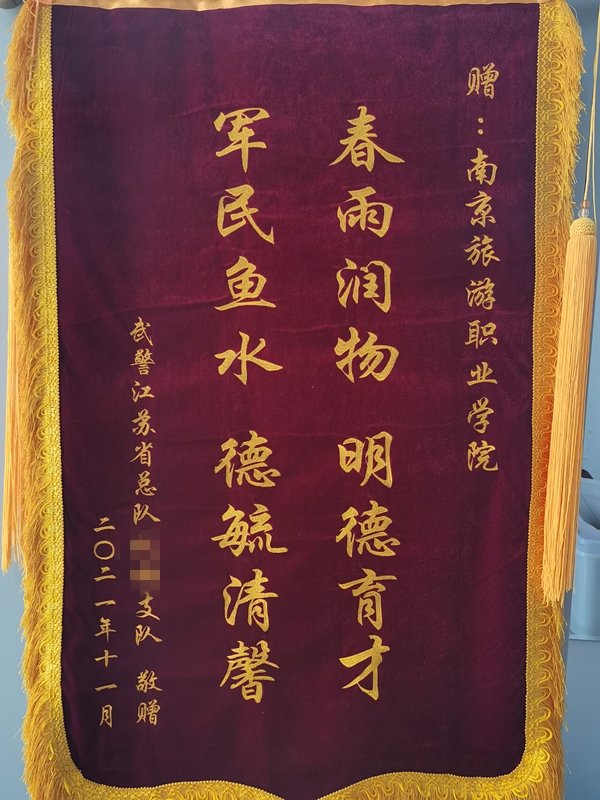 赠：南京旅游职业学院
春雨润物 明德育才
军民鱼水 德毓清馨
武警江苏省总队 支队 敬赠
二〇二一年十一月